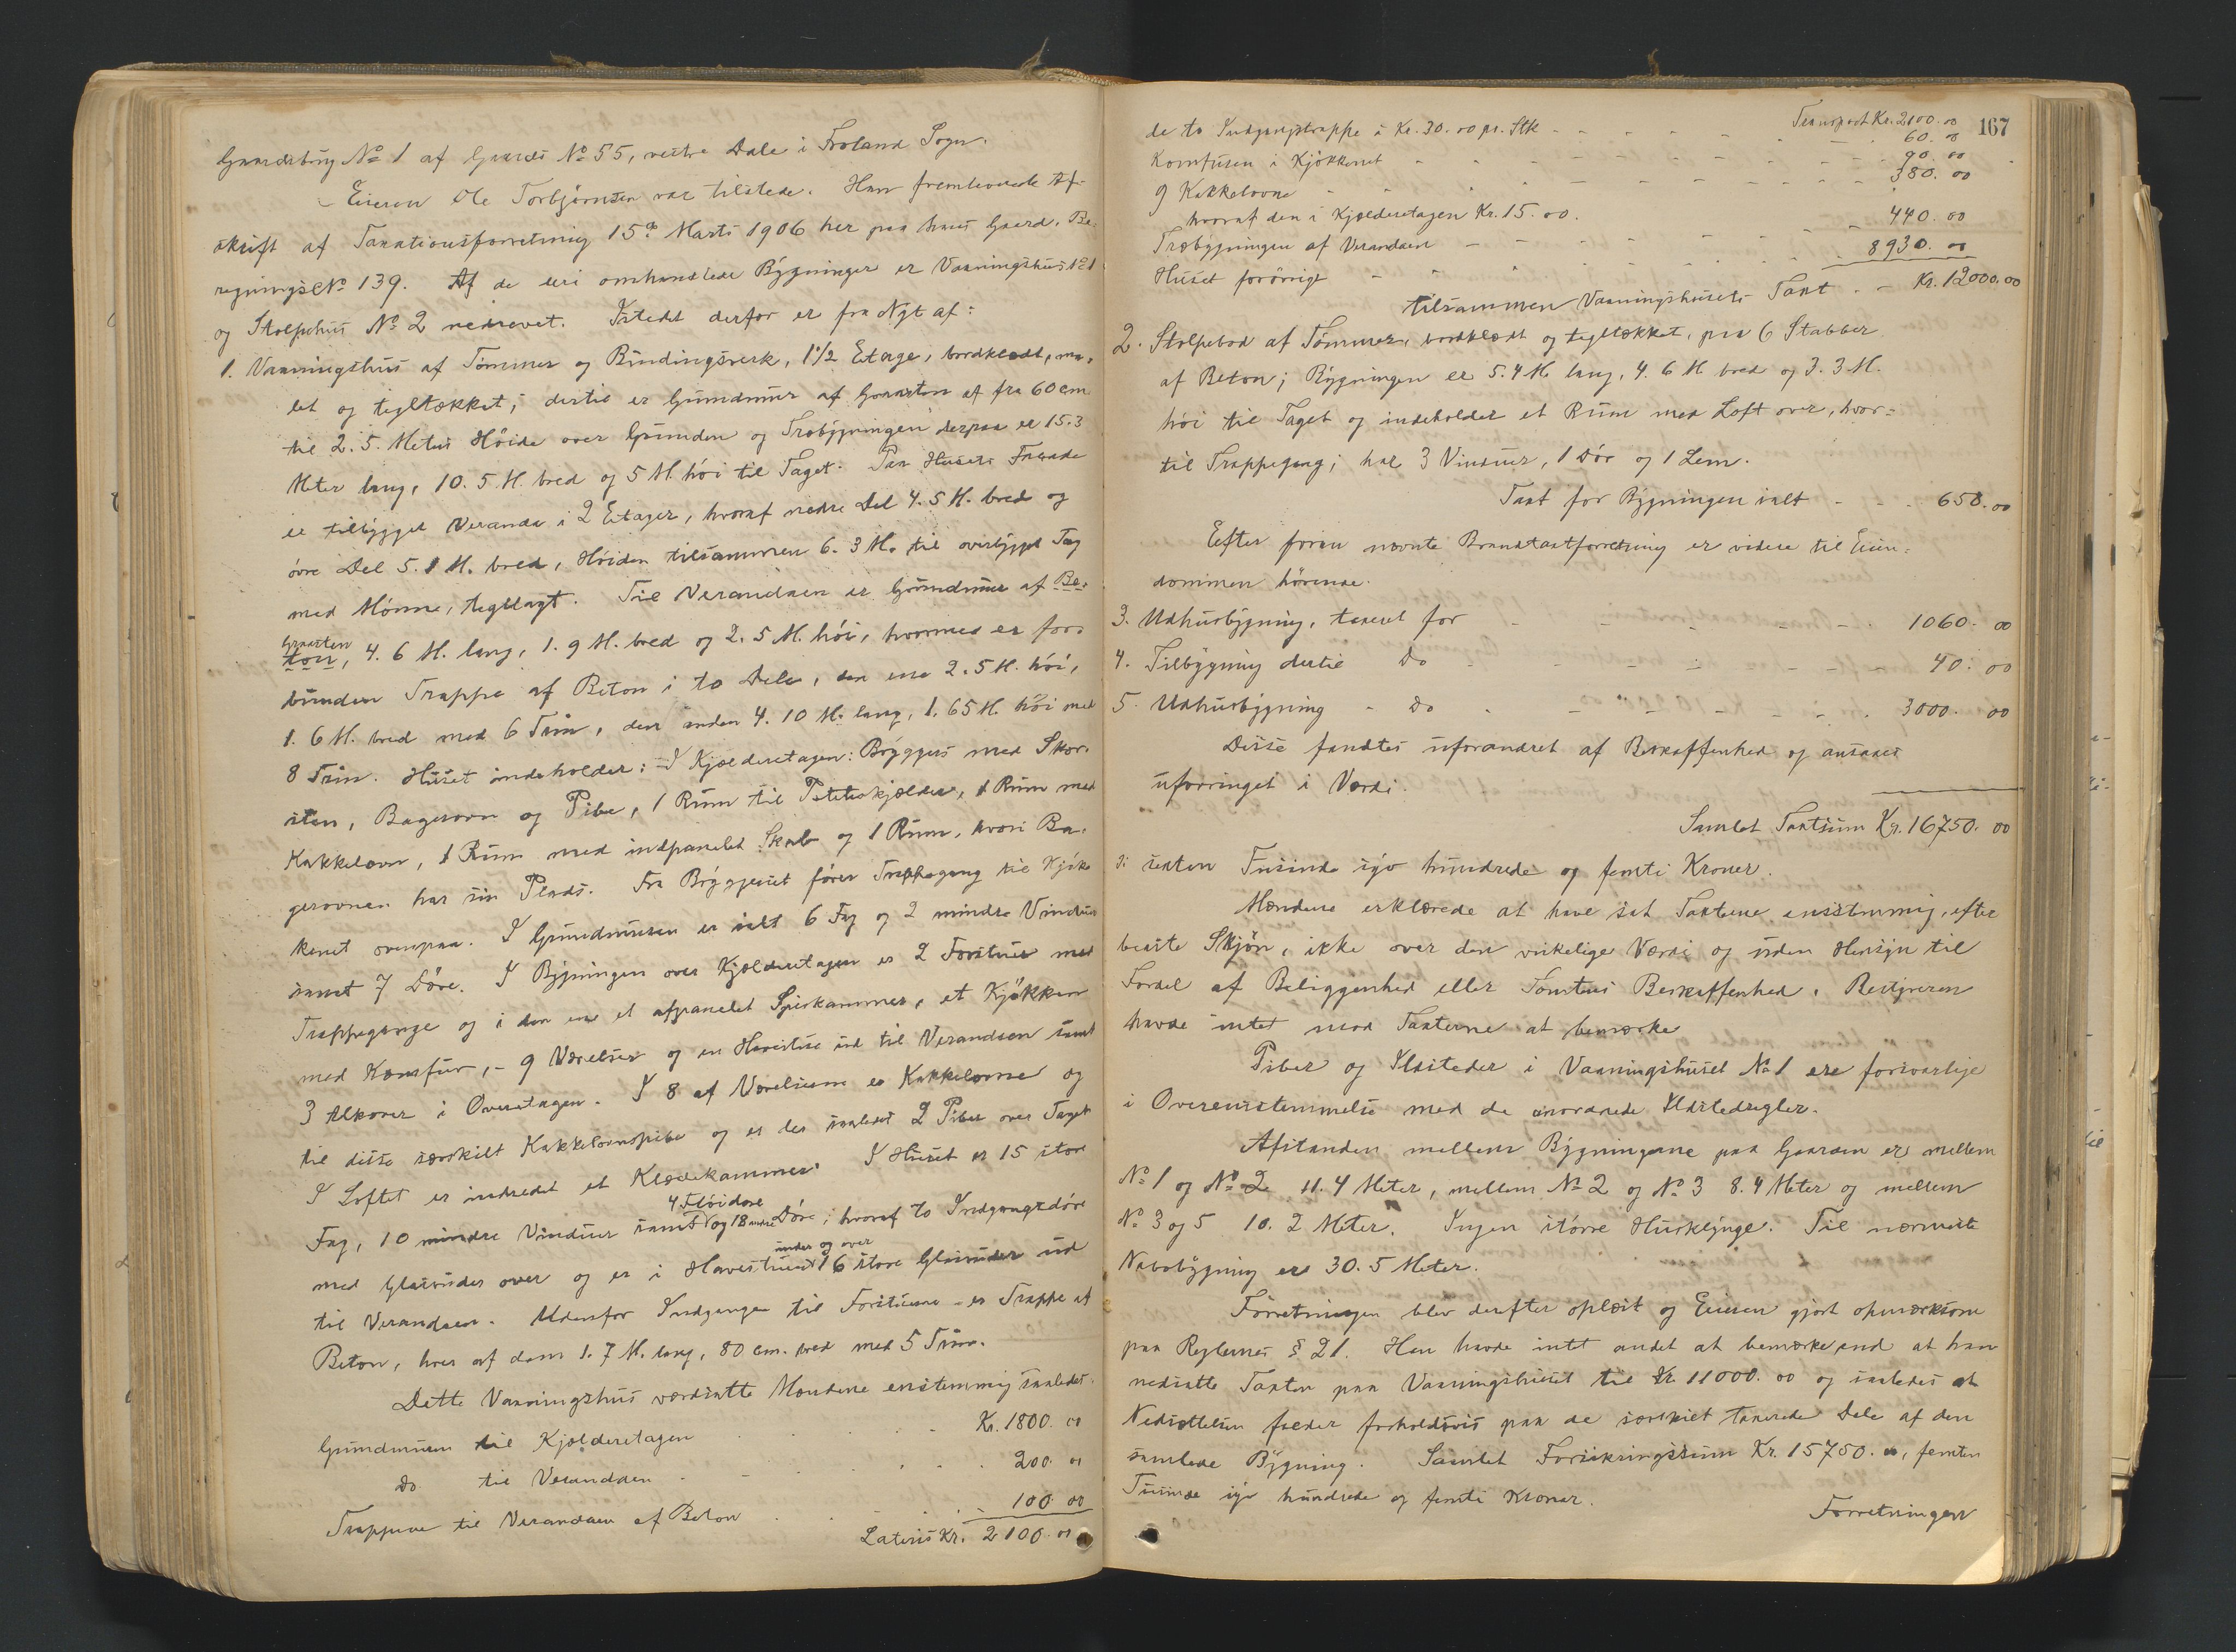 Gaardsbrug No 1 af Gaards No 55, vestre Dale i Froland Sogn.
Eieren Ole Torbjørnsen var tilstede. Han fremleverede Af-
skrift af Taxationsforretning 15de Marts 1906 her paa hans Gaard, Be-
regningsNo 139. Af de deri omhandlede Bygninger er Vaaningshus No 1
og Stolpehus No 2 nedrevet. Istedet derfor er fra Nyt af:
1. Vaaningshus af Tømmer og Bindingsverk, 1 1/2 Etage, bordklædt, ma-
let og tegltækket; dertil er Grundmur af Graasten af fra 60 cm
til 2.5 Meters Høide over Grunden og Træbygningen derpaa er 15.3
Meter lang, 10.5 M. bred og 5 M. høi til Taget. Paa Husets Facade
er tilbygget Veranda i 2 Etager, hvoraf nedre Del 4.5 M. bred og
øvre Del 5.1 M. bred, Høiden tilsammen 6.3 M. til overbygget Tag
med Mønne, tegllagt. Til Verandaen er Grundmur af Be-
Graasten
ton, 4.6 M. lang, 1.9 M. bred og 2.5 M. høi, hvormed er for-
bunden Trappe af Beton i to Dele, den ene 2.5 M. høi,
1.6 M. bred med 6 Trin, den anden 4.10 M. lang, 1.65 M. høi med
8 Trin. Huset indeholder: I Kjælderetagen: Bryggers med Skor-
sten, Bagerovn og Pibe, 1 Rum til Poteteskjælder, 1 Rum med
Kakkelovn, 1 Rum med indpanelet Skab og 1 Rum, hvori Ba-
gerovnen har sin Plads. Fra Bryggerset fører Trappegang til Kjøk-
kenet ovenpaa. I Grundmuren er ialt 6 Fag og 2 mindre Vinduer
samt 7 Døre. I Bygningen over Kjælderetagen er 2 Forstuer med
Trappegange og i den ene et afpanelet Spiskammer, et Kjøkken
med Komfur, - 9 Værelser og en Havestue ud til Verandaen samt
3 Alkover i Overetagen. I 8 af Værelserne er Kakkelovne og
til disse særskilt Kakkelovnspibe og er der saaledes 2 Piber over Taget
I Loftet er indredet et Klædekammer. I Huset er 15 store
4 Fløidøre
Fag, 10 mindre Vinduer samt og 18 andre Døre; hvoraf to Indgangsdøre
under og over
med Glasruder over og er i Havestuen 16 store Glasruder ud
til Verandaen. Udenfor Indgangen til Forstuerne er Trappe af
Beton, hver af dem 1.7 M. lang, 80 cm. bred med 5 Trin.
Dette Vaaningshus værdsatte Mændene enstemmig saaledes:
Grundmuren til Kjælderetagen Kr. 1800. 00
do til Verandaen 200. 00
Trapperne til Verandaen af Beton 100 00
Lateris Kr. 2100. 00
167
Transport Kr. 2100. 00
de to Indgangstrappe à Kr. 30.00 pr. Stk 60. 00
Komfuren i Kjøkkenet 90. 00
9 Kakkelovne 380. 00
hvoraf den i Kjælderetagen Kr. 15.00.
Træbygningen af Verandaen 440. 00
Huset forøvrigt 8930. 00
tilsammen Vaaningshusets Taxt Kr. 12000.00
2. Stolpebod af Tømmer, bordklædt og tegltækket, paa 6 Stabber
af Beton; Bygningen er 5.4 M. lang, 4.6 M. bred og 3.3 M.
høi til Taget og indeholder et Rum med Loft over, hvor-
til Trappegang; har 3 Vinduer, 1 Dør og 1 Lem.
Taxt for Bygningen ialt 650.00
Efter foran nævnte Brandtaxtforretning er videre til Eien-
dommen hørende.
3. Udhusbygning, taxeret for 1060. 00
4. Tilbygning dertil do 40. 00
5. Udhusbygning do 3000. 00
Disse fandtes uforandret af Beskaffenhed og ansaaes
uforringet i Værdi.
Samlet Taxtsum Kr. 16750. 00
ɔ: sexten Tusinde syv hundrede og femti Kroner.
Mændene erklærede at have sat Taxterne enstemmig, efter
bedste Skjøn, ikke over den virkelige Værdi og uden Hensyn til
Fordel af Beliggenhed eller Tomtens Beskaffenhed. Bestyreren
havde intet mod Taxterne at bemærke
Piber og Ildsteder i Vaaningshuset No 1 ere forsvarlige
i Overensstemmelse med de anordnede Ildstedsregler.
Afstanden mellem Bygningerne paa Gaarden er mellem
No 1 og No 2 11.4 Meter, mellem No 2 og No 3 8.4 Meter og mellem
No 3 og 5 10.2 Meter. Ingen større Husklynge. Til nærmeste
Nabobygning er 30.5 Meter.
Forretningen blev derefter oplæst og Eieren gjort opmærksom
paa Reglernes § 21. Han havde intet andet at bemærke end at han
nedsatte Taxten paa Vaaningshuset til Kr. 11000.00 og saaledes at
Nedsættelsen falder forholdsvis paa de særskilt taxerede Dele af den
samlede Bygning. Samlet Forsikringssum Kr. 15750.00, femten
Tusinde syv hundrede og femti Kroner.
Forretningen